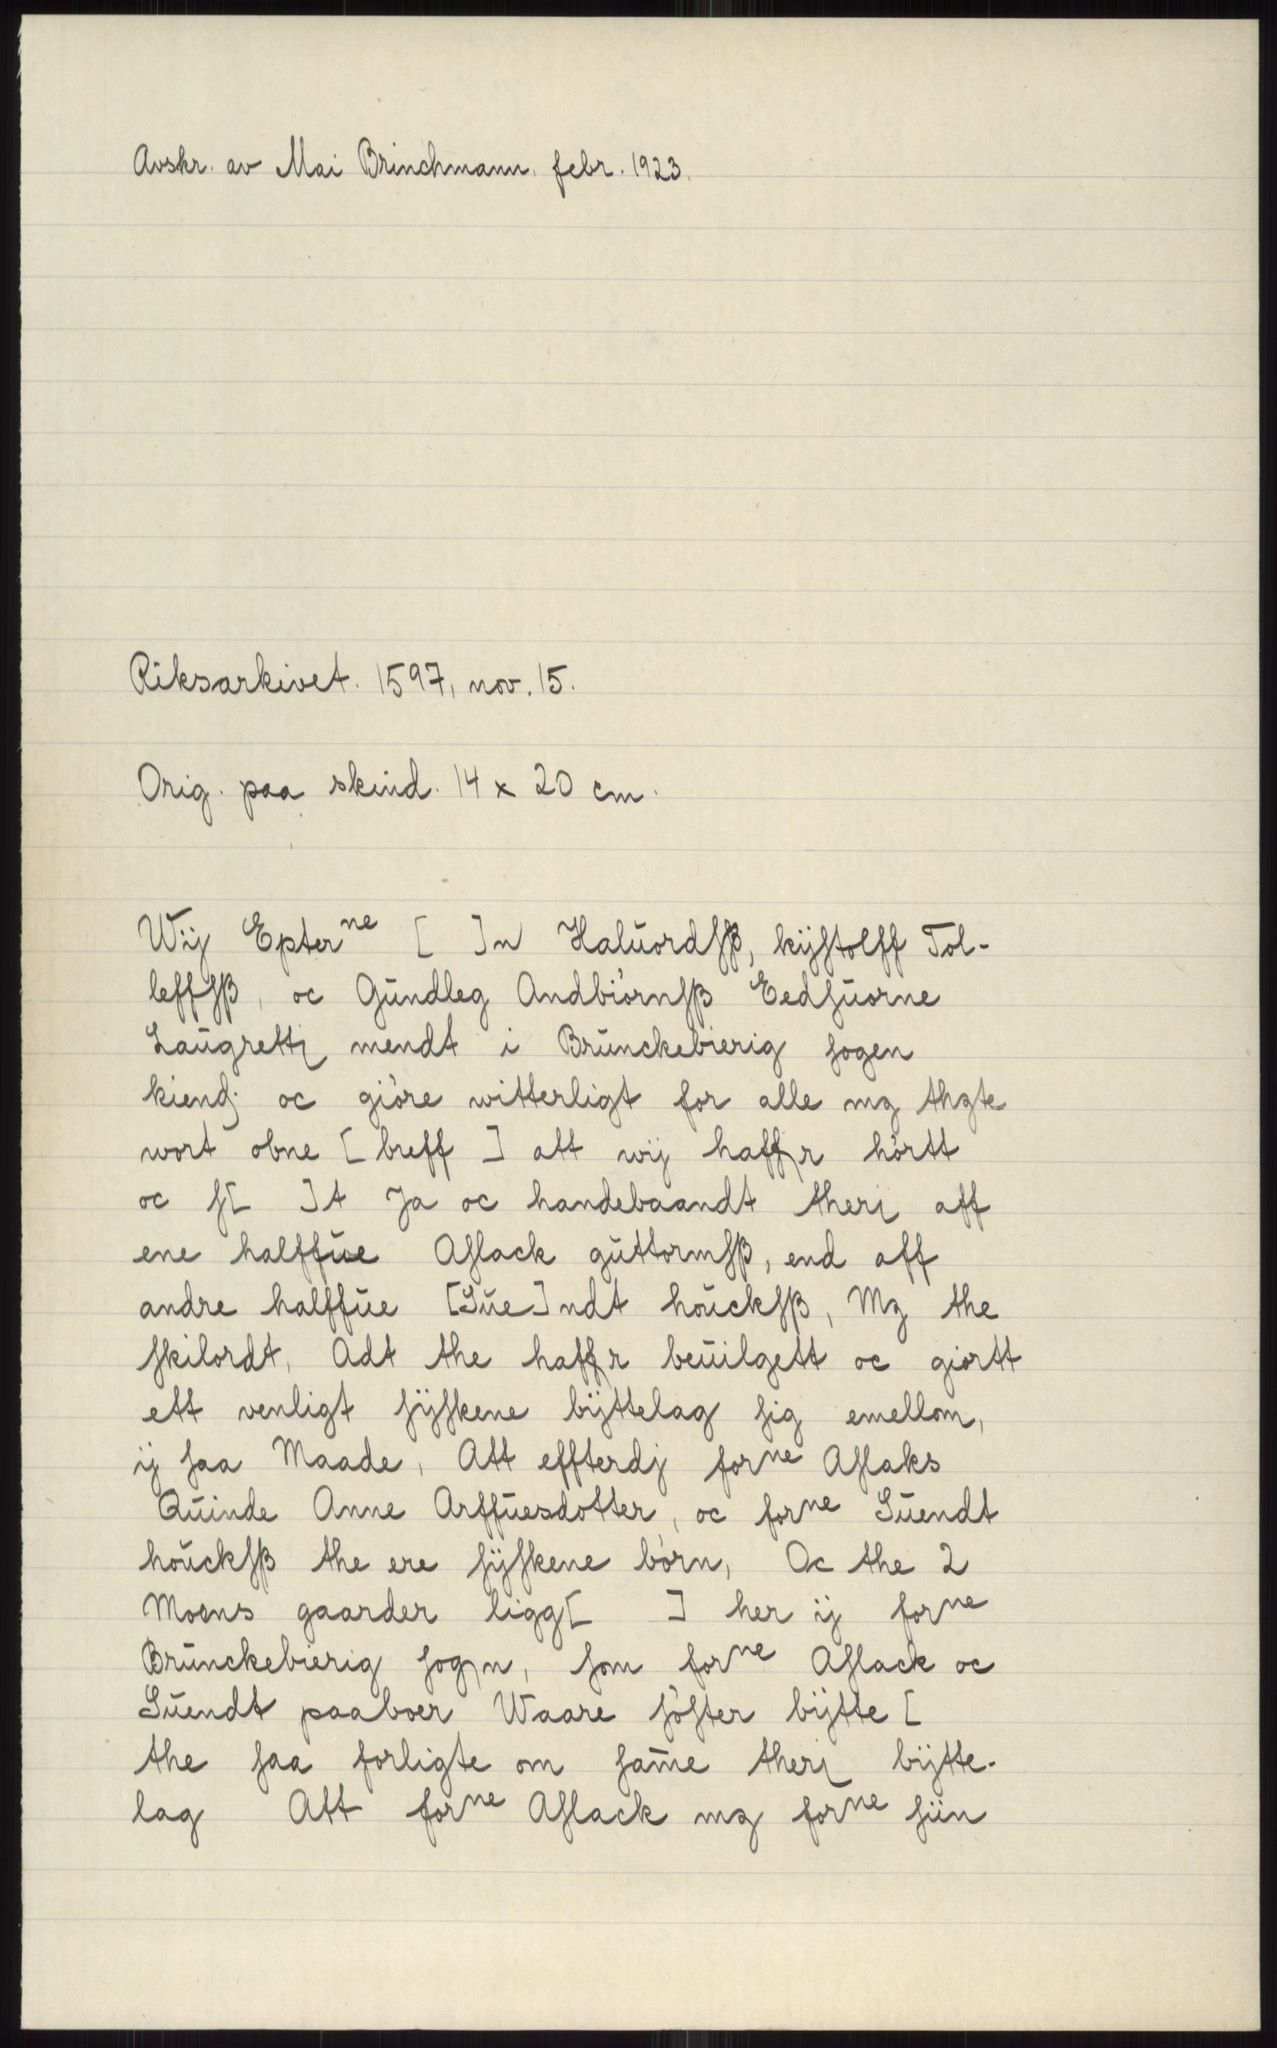 Avskr. av Mai Brinchmann, febr. 1923.
Riksarkivet. 1597, nov. 15.
Orig. paa skind. 14 x 20 cm.
Wij Epterne [ ]n Haluordsß, kijstolff Tol-
leffsß, oc Gundleg Andbiørnsß Eedsuorne
Laugrettj mendt i Brunckebierig sogen
kiendj oc giøre witterligt for alle mz thzte
wort obne [breff ] att wij haffr hørtt
oc s[ ]t Ja oc handebaandt therj aff
ene halffue Aslack guttormsß, end aff
andre halffue [Sue]ndt houcksß, Mz the
skilordt, Adt the haffr beuilgett oc giortt
ett venligt sÿskene bÿttelag sig emellom,
ij saa Maade, Att effterdj forne Aslaks
Quinde Anne Arffuesdotter, oc forne Suendt
houcksß the ere sÿskene børn, Oc the 2
Moens gaarder ligg[ ] her ij forne
Brunckebierig sogn, som forne Aslack oc
Suendt paaboer Waare søster bÿtte [
the saa forligte om same therj bÿtte-
lag Att forne Aslack mz forne siin